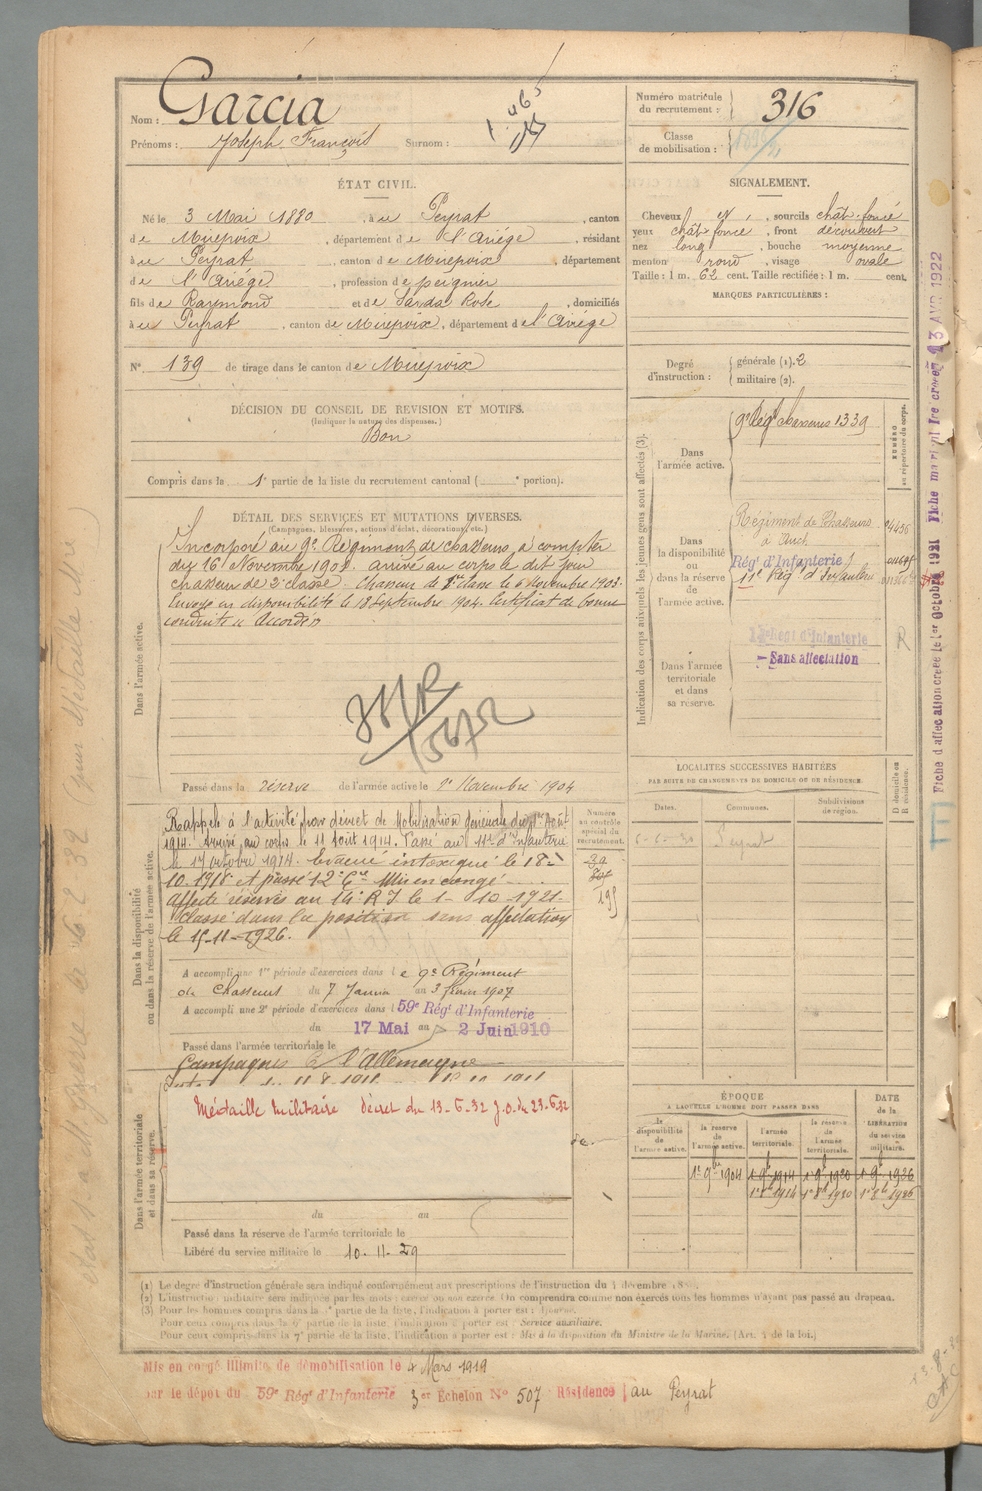 Nom : Garcia
Prénoms : Joseph François Surnom :
Numéro matricule du recrutement : 316
Classe de mobilisation :
ÉTAT CIVIL.
Né le 3 Mai 1880, à Peyrat, canton
de Mirepoix, département de l'Ariège, résidant
à Peyrat, canton de Mirepoix, département
de l'Ariège, profession de peignier
fils de Raymond et de Sarda Rose, domiciliés
à Peyrat, canton de Mirepoix, département de l'Ariège
N° 139 de tirage dans le canton de Mirepoix
SIGNALEMENT.
Cheveux et, sourcils chât. foncé
yeux chât foncé, front découvert
nez long, bouche moyenne
menton rond, visage ovale
Taille : 1 m. 62 cent. Taille rectifiée : 1 m. cent.
MARQUES PARTICULIÈRES :
Degré d'instruction : générale (1). 2
militaire (2).
DÉCISION DU CONSEIL DE REVISION ET MOTIFS.
(Indiquer la nature des dispenses.)
Bon
Compris dans la 1e partie de la liste du recrutement cantonal ( e portion).
DÉTAIL DES SERVICES ET MUTATIONS DIVERSES.
(Campagnes, blessures, actions d'éclat, décorations, etc.)
Dans l'armée active.
Incorporé au 9e Régiment de chasseurs à compter
du 16 Novembre 1901. arrivé au corps le dit jour
chasseur de 2e classe. Chasseur de 1re classe le 6 Novembre 1903.
Envoyé en disponibilité le 18 Septembre 1904. Certificat de bonne
conduite "Accordé"
Passé dans la réserve de l'armée active le 1er Novembre 1904
Dans la disponibilité ou dans la réserve de l'armée active.
Rappelé à l'activité par décret de Mobilisation générale du 1er Août
1914. Arrivé au corps le 11 Août 1914. Passé au 11e d'Infanterie
le 17 octobre 1914. Evacué intoxiqué le 18-
10-1918 et passé 12e Cie Mis en congé
Affecté réserves au 14e R I le 1-10-1921-
Classé dans la position sans affectation
le 15-11-1926.
A accompli une 1re période d'exercices dans le 9e Régiment
de Chasseurs du 7 Janvier au 3 février 1907
A accompli une 2e période d'exercices dans l 59e Régt d'Infanterie
du 17 Mai au 2 Juin 1910
Passé dans l'armée territoriale le
Campagnes contre l'Allemagne
Dans l'armée territoriale et dans sa réserve.
Médaille Militaire Décret du 13-6-32 J.O. du 23-6-32
du au
Passé dans la réserve de l'armée territoriale le
Libéré du service militaire le 10-11-29
Numéro au contrôle spécial du recrutement.
Indication des corps auxquels les jeunes gens sont affectés (3).
NUMÉRO au répertoire du corps.
Dans l'armée active.
9e Régt chasseurs 1339
Dans la disponibilité ou dans la réserve de l'armée active.
Régiment de Chasseurs
à Auch
Régt d'Infanterie
11e Régt d'Infanterie
Dans l'armée territoriale et dans sa réserve.
Régt d'Infanterie
Sans affectation
R
LOCALITÉS SUCCESSIVES HABITÉES
PAR SUITE DE CHANGEMENTS DE DOMICILE OU DE RÉSIDENCE.
D domicile ou R résidence.
Dates. Communes. Subdivisions de région.
Peyrat
ÉPOQUE
A LAQUELLE L'HOMME DOIT PASSER DANS
la disponibilité de l'armée active. la réserve de l'armée active. l'armée territoriale. la réserve de l'armée territoriale.
DATE de la LIBÉRATION du service militaire.
1er 9bre 1904 1er 9bre 1914 1er 9bre 1920 1er 9bre 1926
1er 8bre 1914 1er 8bre 1920 1er 8bre 1926
(1) Le degré d'instruction générale sera indiqué conformément aux prescriptions de l'instruction du 4 décembre
(2) L'instruction militaire sera indiquée par les mots : exercé ou non exercé. On comprendra comme non exercés tous les hommes n'ayant pas passé au drapeau.
(3) Pour les hommes compris dans la partie de la liste, l'indication à porter est : Ajourné.
Pour ceux compris dans la 6e partie de la liste, l'indication à porter est : Service auxiliaire.
Pour ceux compris dans la 7e partie de la liste, l'indication à porter est : Mis à la disposition du Ministre de la Marine. (Art. 4 de la loi.)
Mis en congé illimité de démobilisation le 4 Mars 1919
par le dépôt du 59e Régt d'Infanterie 3er Echelon N° 507 Résidence au Peyrat
Fiche d'affectation créée le 1er Octobre 1921